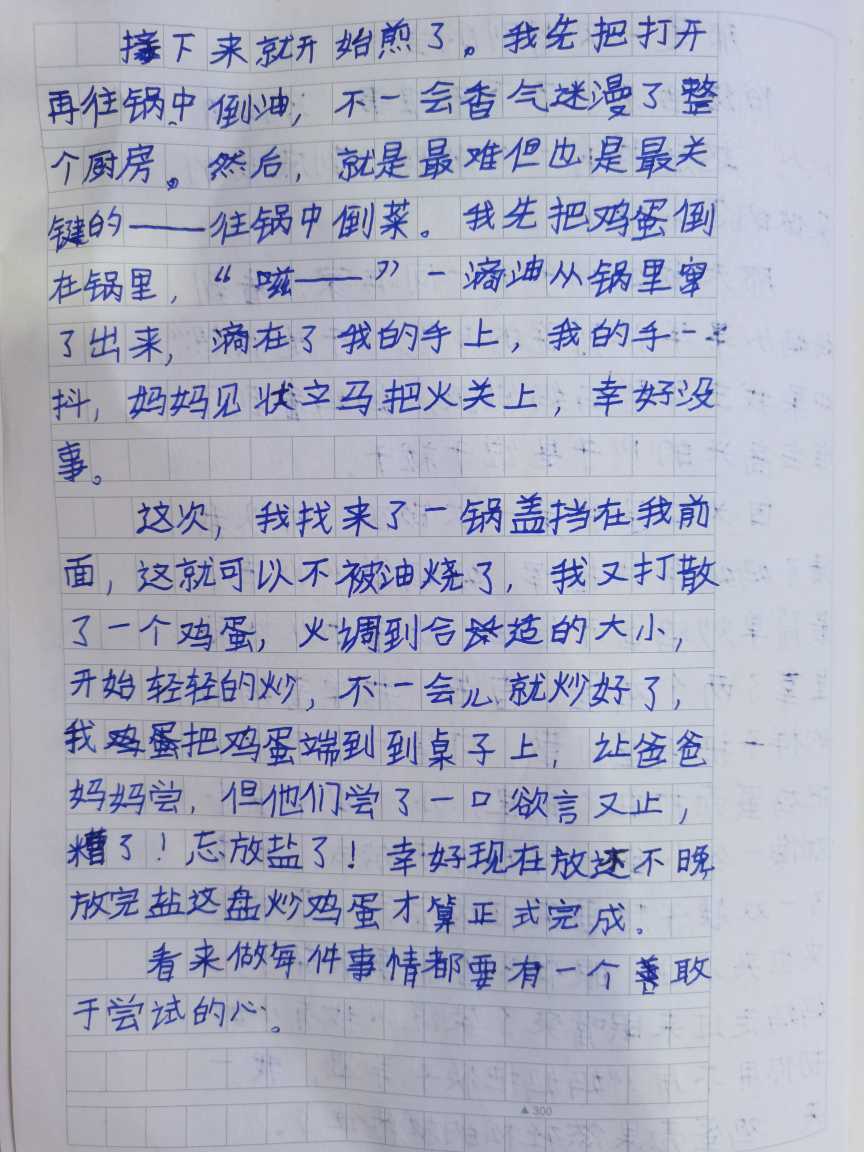 接下来就开始煎了。我先把打开
再往锅中倒油，不一会香气迷漫了整
个厨房。然后，就是最难但也是最关
键的——往锅中倒菜。我先把鸡蛋倒
在锅里，“嗞——”一滴油从锅里窜
了出来，滴在了我的手上，我的手一
抖，妈妈见状立马把火关上，幸好没
事。
这次，我找来了一锅盖挡在我前
面，这就可以不被油烧了，我又打散
了一个鸡蛋，火调到合造的大小，
开始轻轻的炒，不一会儿就炒好了，
我把鸡蛋端到到桌子上，让爸爸
妈妈尝，但他们尝了一口欲言又止，
糟了！忘放盐了！幸好现在放还不晚
放完盐这盘炒鸡蛋才算正式完成。
看来做每件事情都要有一个敢
于尝试的心。
▲300